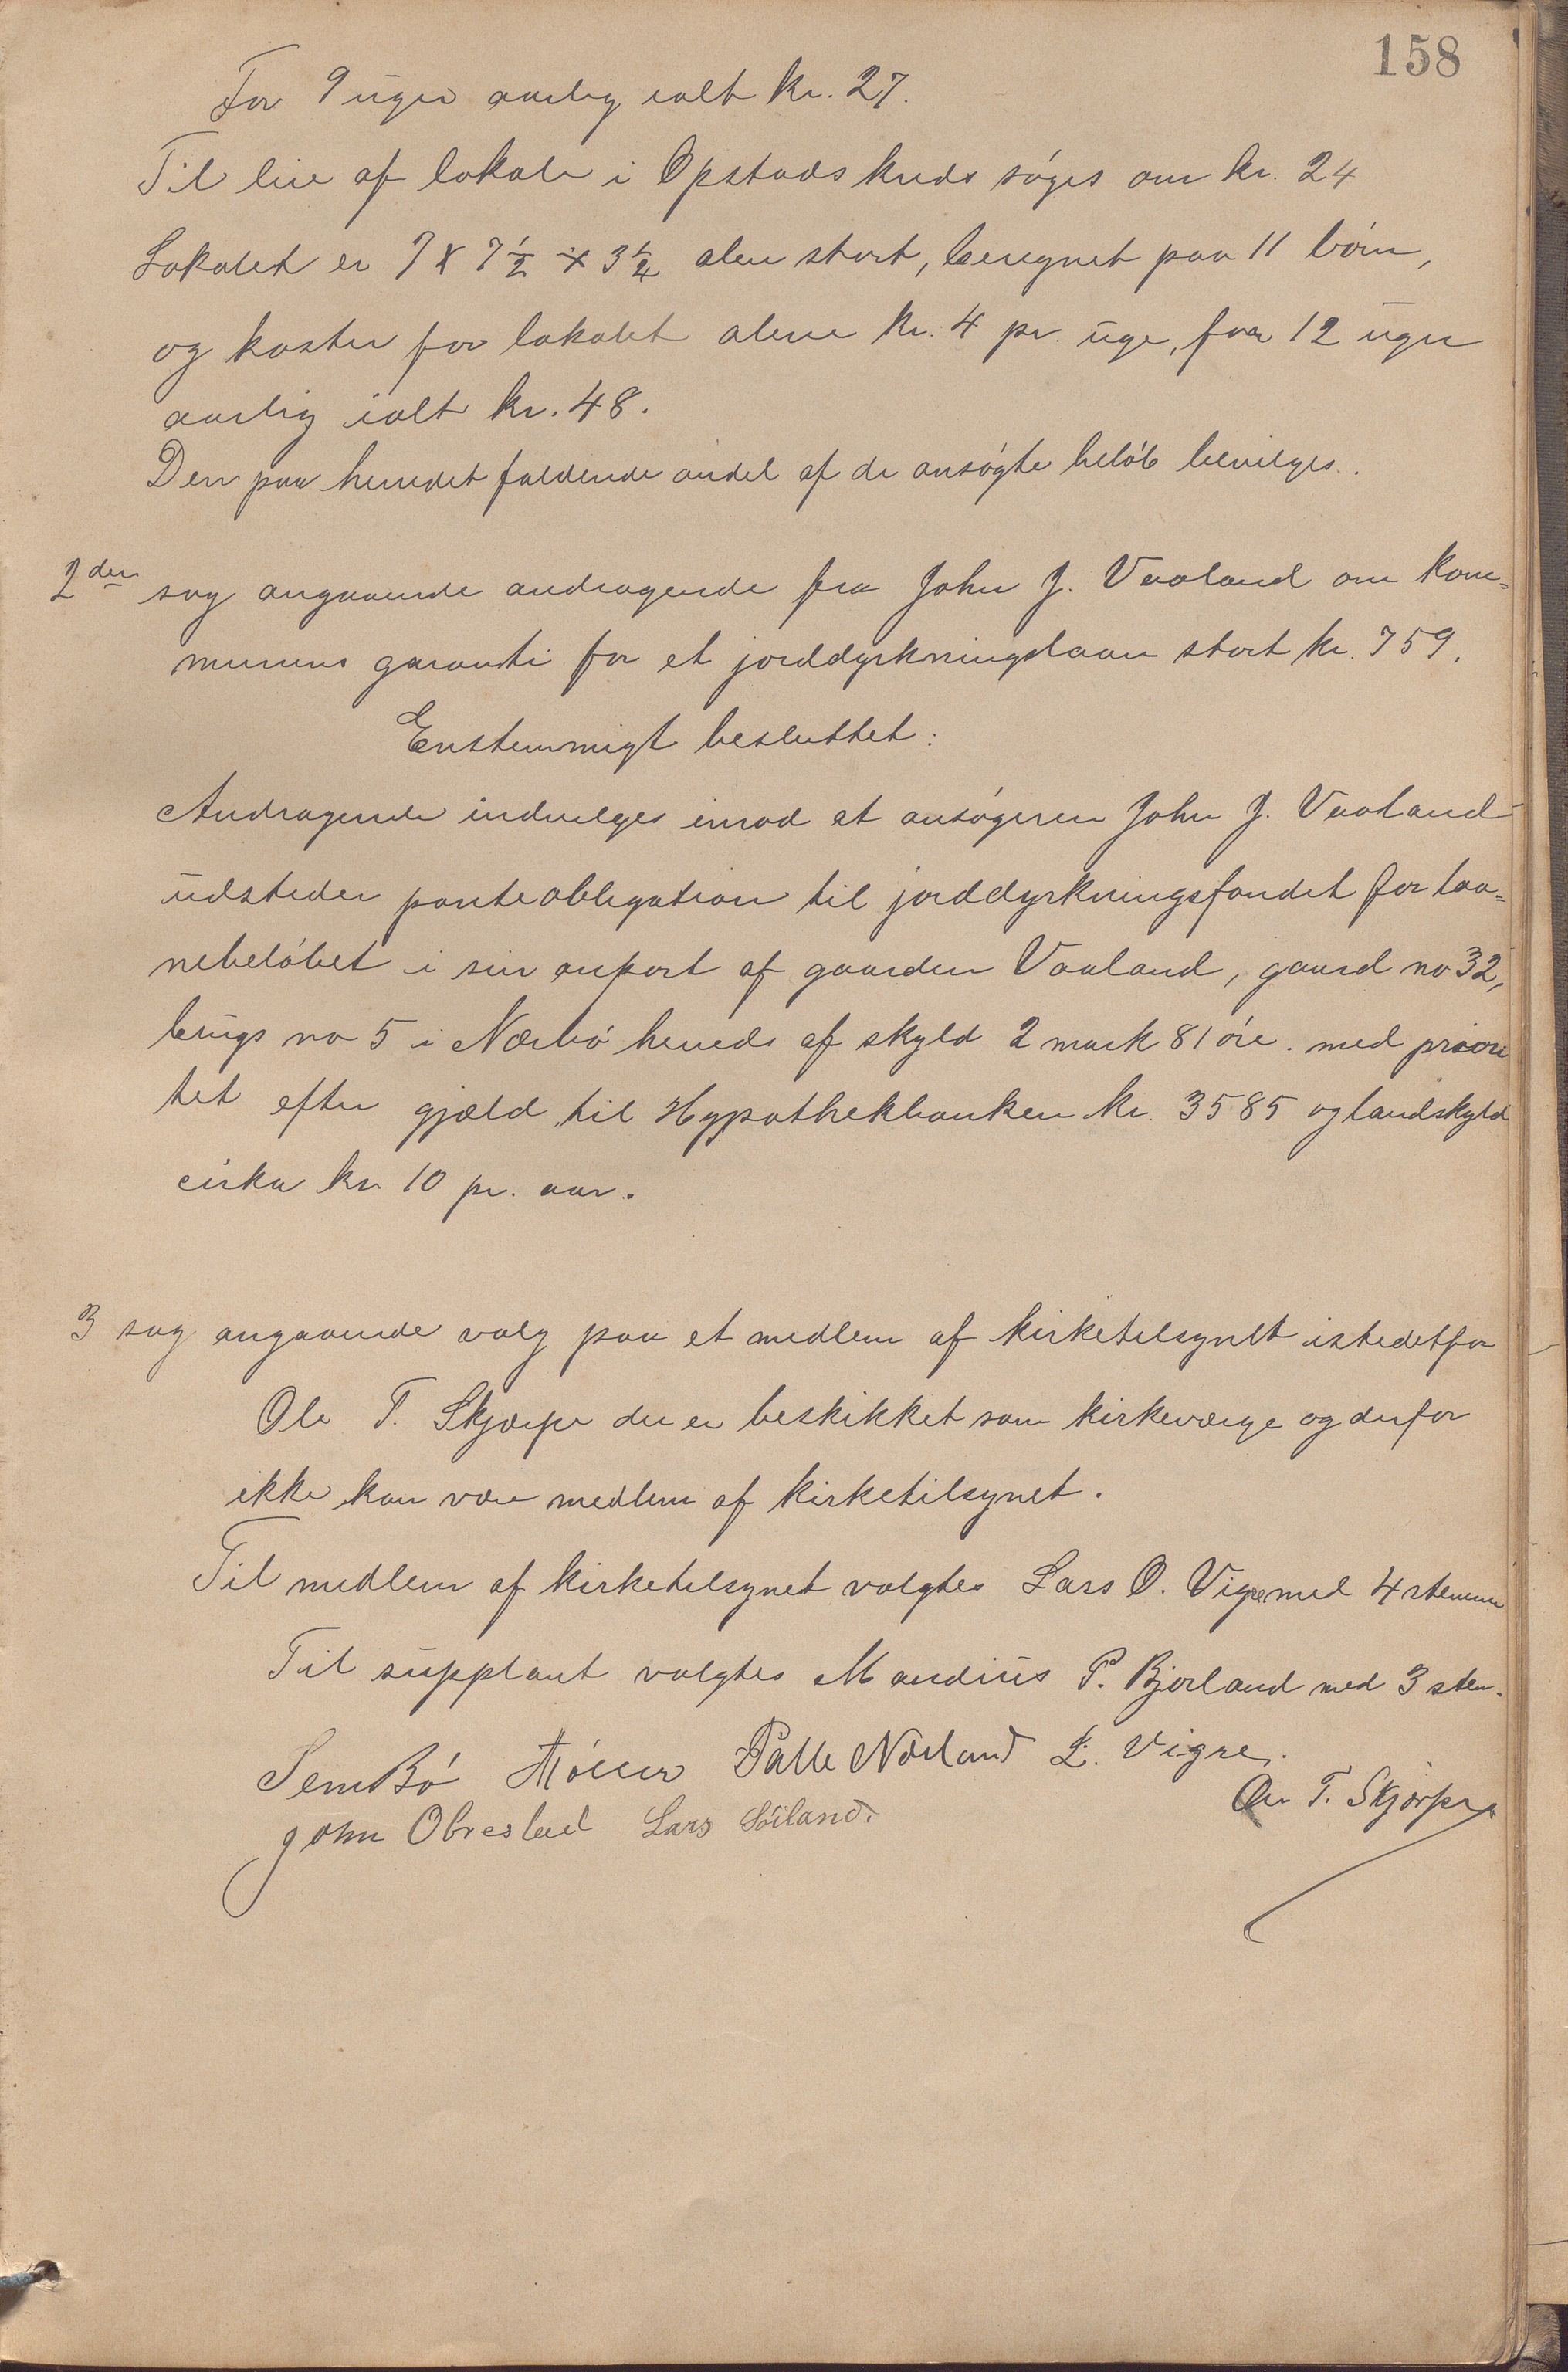 158
For 9 uger aarlig ialt kr. 27.
Til leie af lokale i Opstads kreds søges om kr. 24
Lokalet er 7 x 7½ x 3¼ alen stort, beregnet paa 11 børn,
og koster for lokalet alene kr. 4 pr. uge, for 12 uger
aarlig ialt kr. 48.
Den paa herredet faldende andel af de ansøgte beløb bevilges.
2den sag angaaende andragende fra John J. Vaaland om kom=
munens garanti for et jorddyrkningslaan stort kr. 759.
Enstemmigt besluttet:
Andragende indvilges imod at ansøgeren John J. Vaaland
udsteder panteobligation til jorddyrkningsfondet for laa=
nebeløbet i sin anpart af gaarden Vaaland, gaard no 32,
brugs no 5 i Nærbø herred af skyld 2 mark 81 øre. med priori
tet efter gjæld til Hypothekbanken kr. 3585 og landskyld
cirka kr 10 pr. aar.
3 sag angaaende valg paa et medlem af kirketilsynet istedetfor
Ole T. Skjærpe der er beskikket som kirkeværge og derfor
ikke kan være medlem af kirketilsynet.
Til medlem af kirketilsynet valgtes Lars O. Vigre med 4 stemmer
Til supplant valgtes Mandius P. Bjorland med 3 stem.
Sem Bø Palle Nærland L. Vigre.
Ole T. Skjærpe
John Obrestad Lars Söiland.